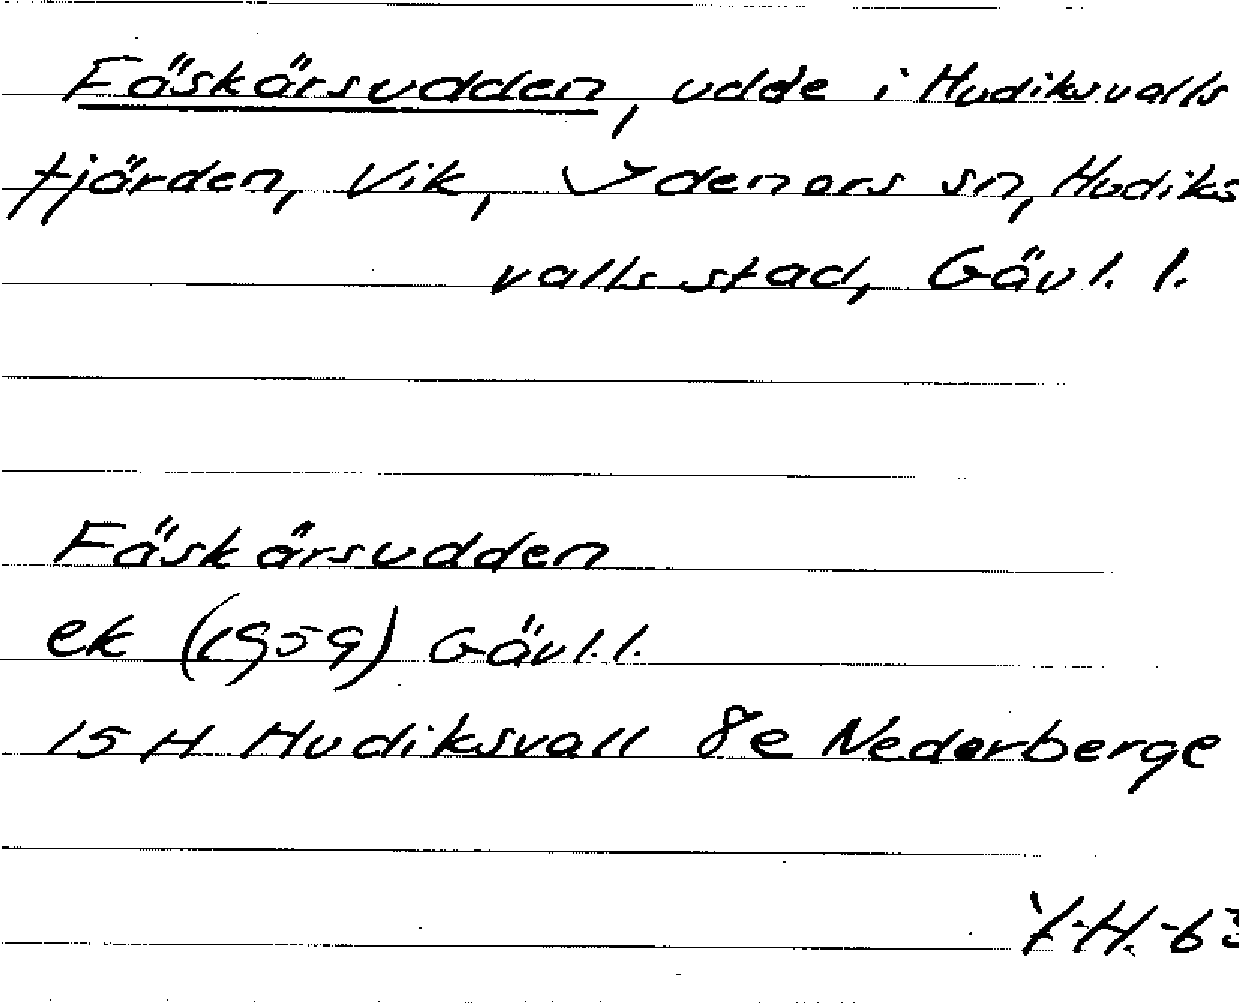 Fäskärsudden, udde i Hudiksvalls
fjärden, Vik, Idenors sn, Hudiks
valls stad, Gävl. l.
Fäskärsudden
ek (1959) Gävl. l.
15 H Hudiksvall 8e Nederberge
Y.H. -63